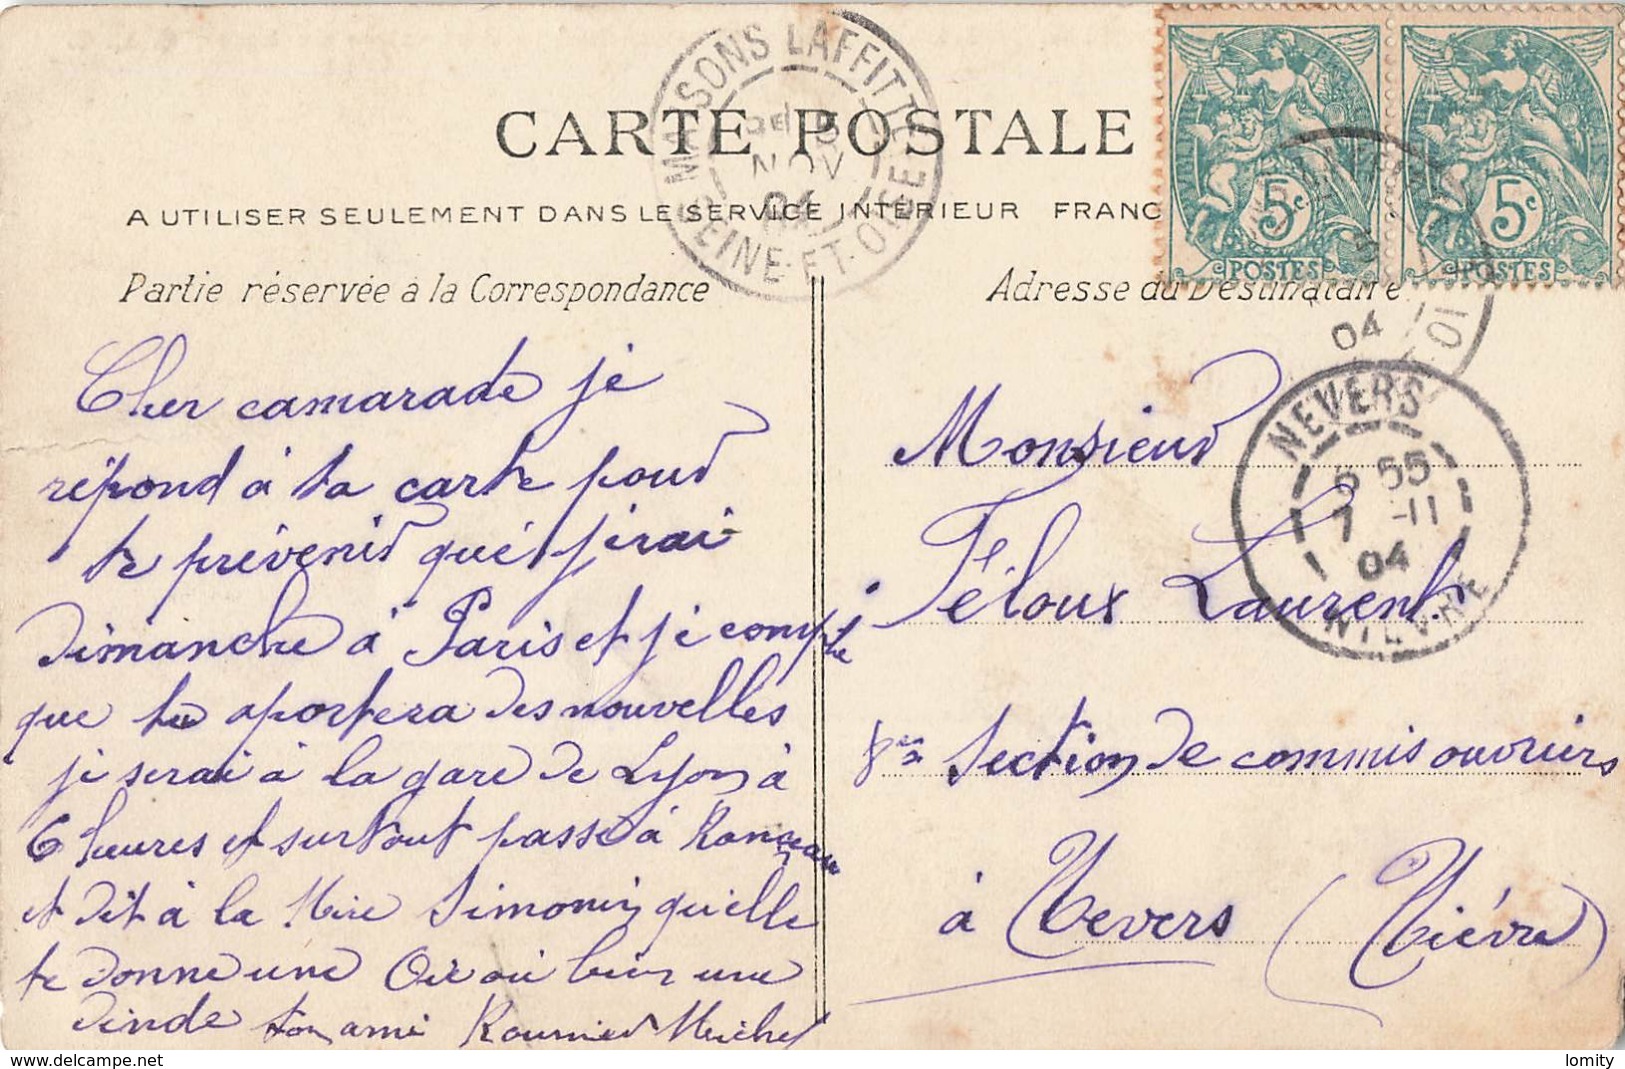 CARTE POSTALE
A UTILISER SEULEMENT DANS LE SERVICE INTERIEUR FRANC
Partie réservée à la Correspondance
Cher camarade je
répond à ta carte pour
te prévenir que j'irai
dimanche à Paris et je compte
que tu aportera des nouvelles
je serai à la gare de Lyon à
6 heures et surtout passe à
et dit à la Mère Simonin qu'elle
te donne une Oie ou bien une
dinde ton ami Rournier Michel
Adresse du Destinataire
Monsieur
Féloux Laurent.
8e Section de commis ouvriers
à Nevers (Nièvre)
MAISONS LAFFITTE
NOV
04
SEINE-ET-OISE
5c
POSTES
5c
POSTES
04
NEVERS
55
7 -11
04
NIEVRE
delcampe.net
lomity